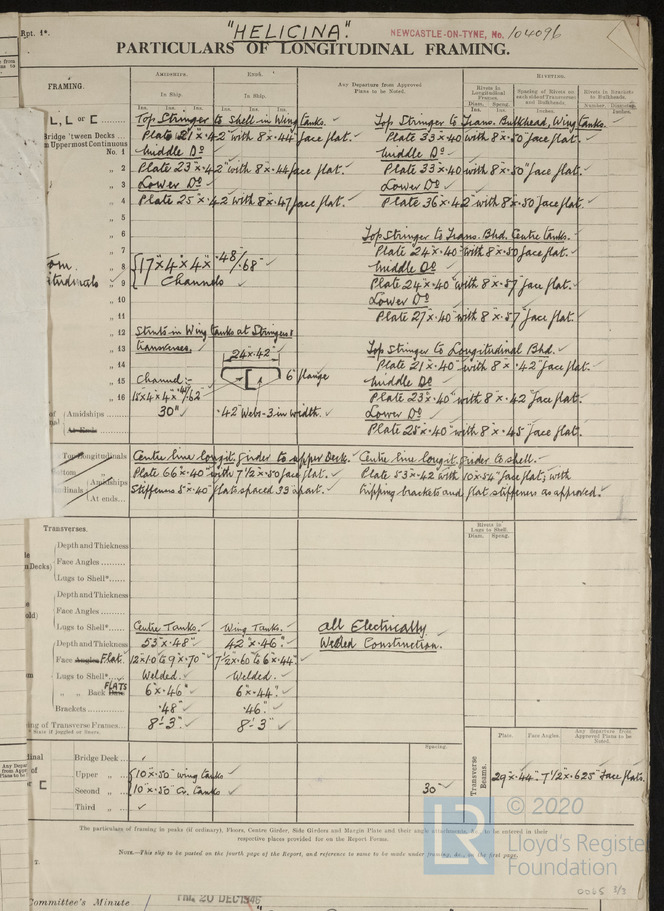 Rpt. 1*.
"HELICINA".
NEWCASTLE-ON-TYNE, No. 104096
PARTICULARS OF LONGITUDINAL FRAMING.
FRAMING.
AMIDSHIPS.
ENDS.
Any Departure from Approved Plans to be Noted.
RIVETING.
In Ship.
In Ship.
Rivets in Longitudinal Frames.
Spacing of Rivets on each side of Transverses and Bulkheads.
Rivets in Brackets to Bulkheads.
Ins. Ins. Ins. Ins. Ins. Ins.
Diam. Spcng.
Ins. Ins.
Inches.
Number. Diameter. Inches.
L, L or C
Top Stringer to Shell in Wing tanks.
Top Stringer to Trans. Bulkhead, Wing tanks.
Bridge 'tween Decks
Plate 21 × .42" with 8" × .44 face flat.
Plate 33 × .40 with 8" × .50 face flat.
Uppermost Continuous
No. 1
Middle Do
Middle Do
„ 2
Plate 23" × .42" with 8" × .44 face flat.
Plate 33 × .40 with 8" × .50" face flat.
„ 3
Lower Do
Lower Do
„ 4
Plate 25" × .42 with 8" × .47 face flat.
Plate 36 × .42" with 8" × .50 face flat.
„ 5
„ 6
Top Stringer to Trans. Bhd. Centre tanks.
„ 7
Plate 24 × .40" with 8" × .50 face flat.
„ 8
17" × 4" × 4" × .48/.68"
Middle Do
„ 9
Channels
Plate 24" × .40" with 8" × .57 face flat.
„ 10
Lower Do
„ 11
Plate 27" × .40 with 8" × .57 face flat.
„ 12
Struts in Wing tanks at Stringers &
„ 13
transverses.
24" × .42"
Top Stringer to Longitudinal Bhd.
„ 14
Plate 21" × .40" with 8" × .42" face flat.
„ 15
Channel :-
6" flange
Middle Do
„ 16
Plate 23" × .40" with 8" × .42" face flat.
Amidships
30"
.42" Webs - 3 in width.
Lower Do
At Ends
Plate 25" × .40" with 8" × .45 face flat.
Longitudinals
Centre line longit. girder to upper Deck.
Centre line longit. girder to shell.
Amidships
Plate 66" × .40" with 7 1/2" × .50 face flat.
Plate 53" × .42 with 10" × .54" face flat, with
At ends...
Stiffeners 5" × .40" flats spaced 33 apart.
tripping brackets and flat stiffeners as approved.
Transverses.
Rivets in Lugs to Shell.
Diam. Spcng.
Depth and Thickness
Face Angles
Lugs to Shell*
Depth and Thickness
Face Angles
Lugs to Shell*
Centre Tanks.
Wing Tanks.
All Electrically
Depth and Thickness
53" × .48"
42" × .46"
Welded Construction.
Face Angles Flat.
12 × .10 to 9 × .70"
7 1/2 × .60 to 6 × .44"
Lugs to Shell*
Welded.
Welded.
„ „ Back FLATS
6" × .46"
6" × .44"
Brackets
.48"
.46"
Spacing of Transverse Frames
8'-3"
8'-3"
* State if joggled or liners.
Spacing.
Plate.
Face Angles.
Any Departure from Approved Plans to be Noted.
Bridge Deck
Transverse Beams.
Upper „
10" × .50" wing tanks
29" × .44" 7 1/2" × .625" face flats.
Second „
10" × .50" Cr. tanks
30"
Third „
The particulars of framing in peaks (if ordinary), Floors, Centre Girder, Side Girders and Margin Plate and their angle attachments, &c., to be entered in their
respective places provided for on the Report Forms.
NOTE.—This slip to be posted on the fourth page of the Report, and reference to same to be made under framing, &c., on the first page.
LR
© 2020
Lloyd's Register
Foundation
0065 3/3
Committee's Minute
THU. 20 DEC 1946